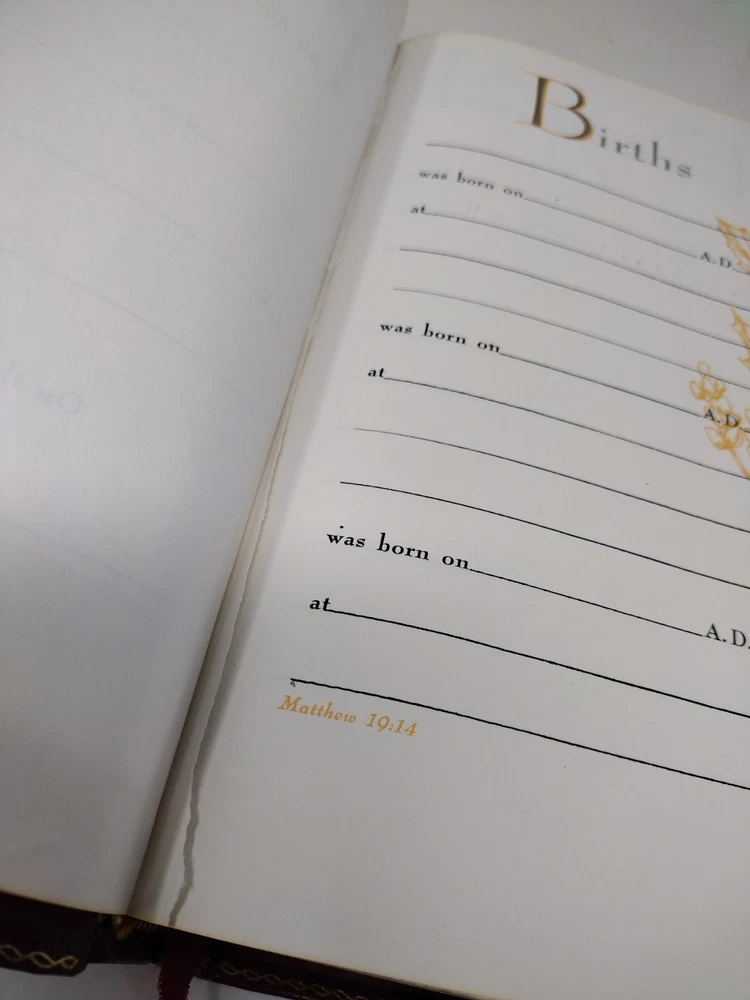 Births
was born on
A.D.
at
was born on
A.D.
at
was born on
A.D.
at
Matthew 19:14